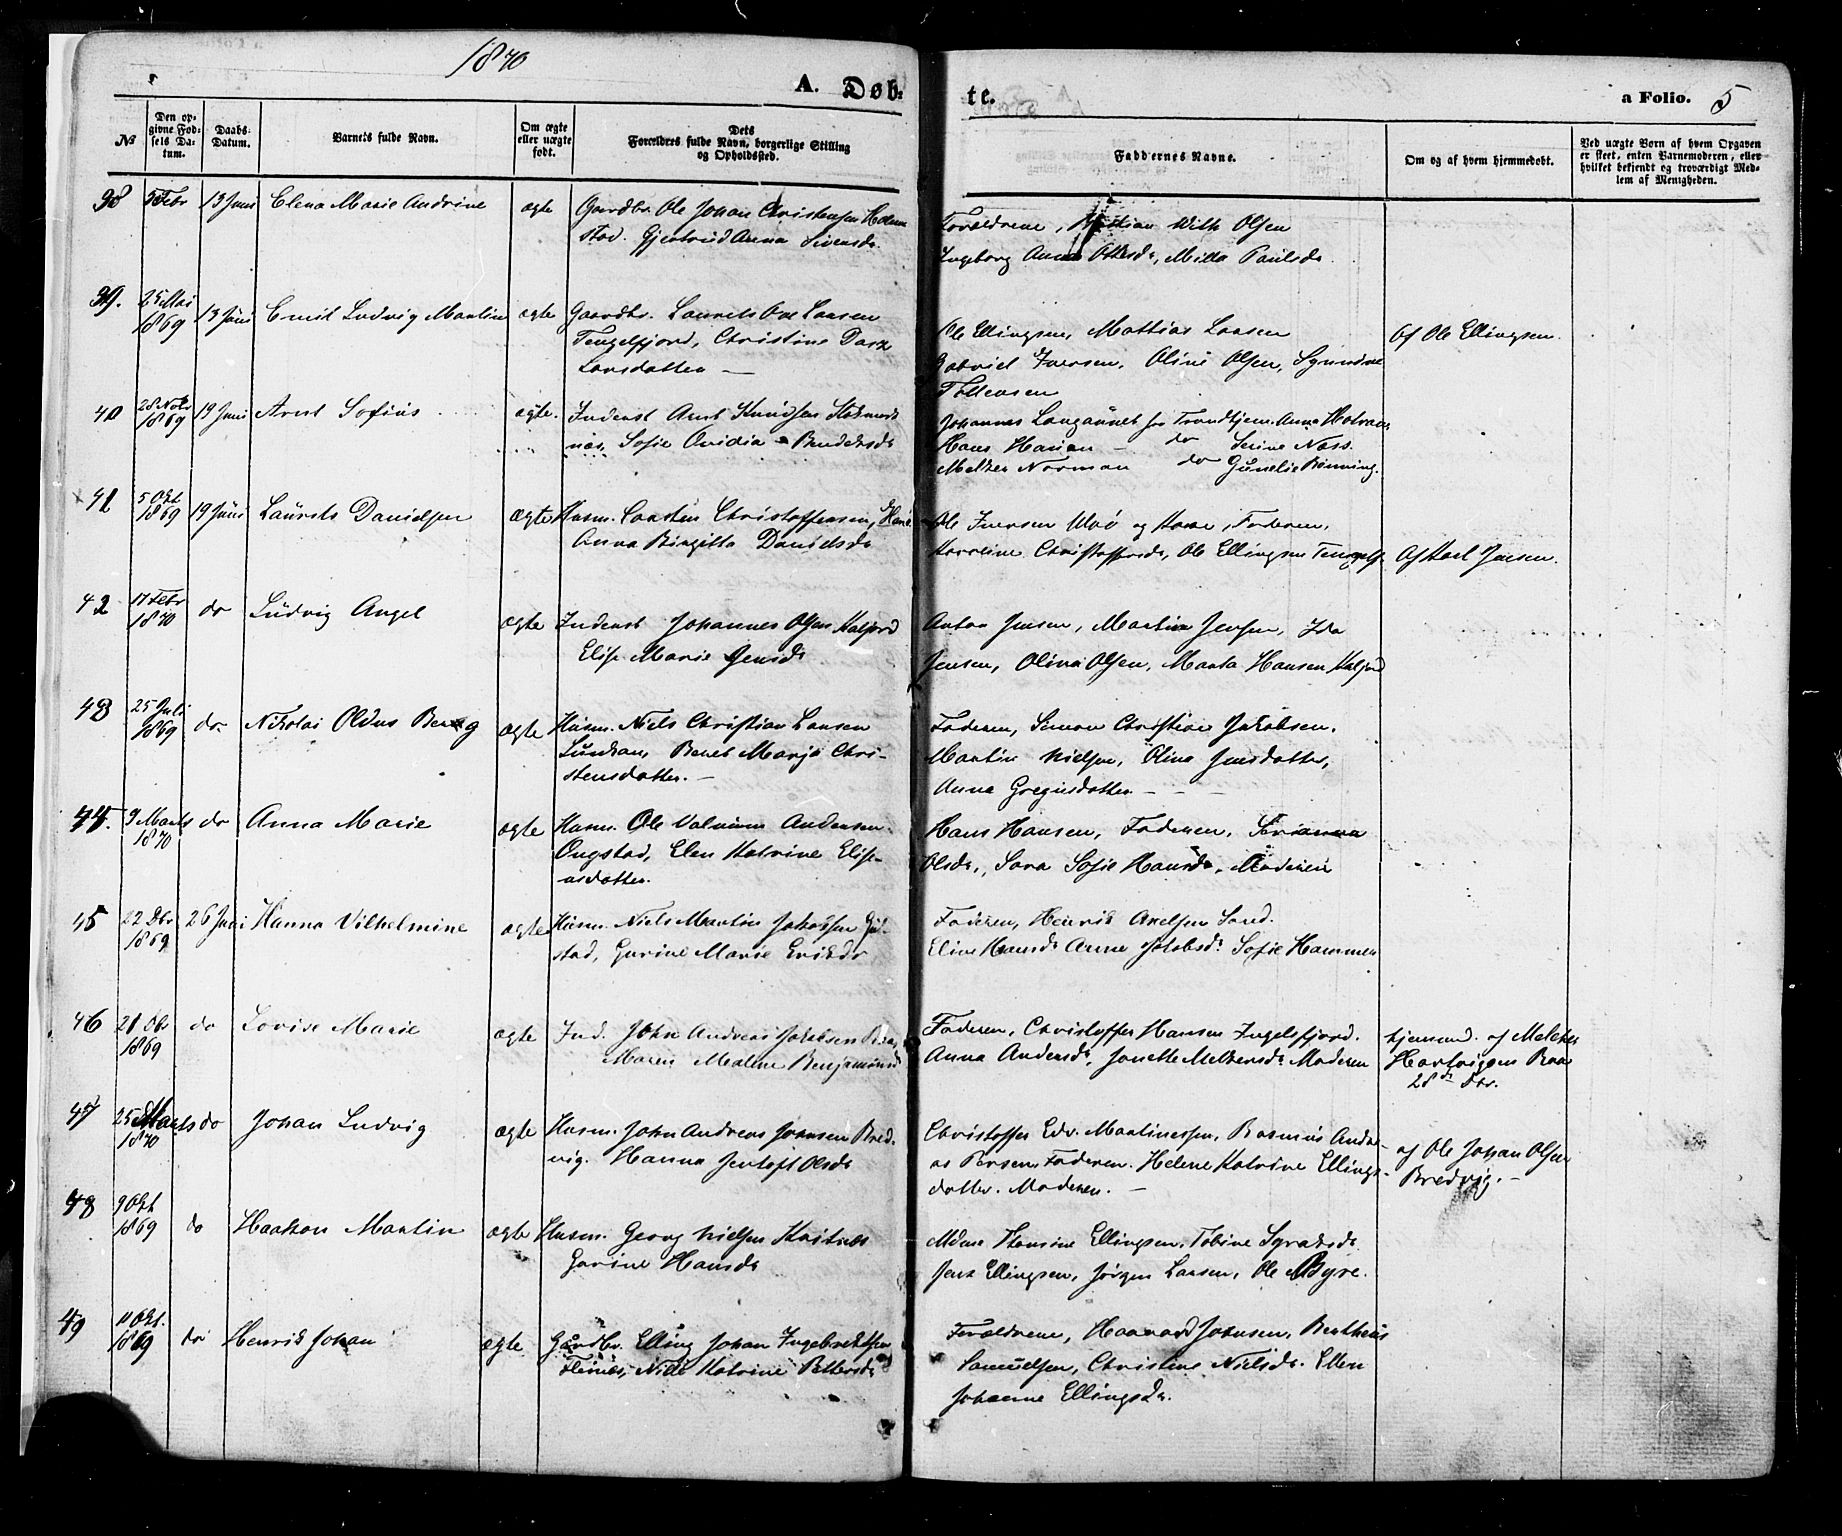 1870
A. Døb-
te.
a Folio. 5
№
Den op-
givne Fød-
sels Da-
tum.
Daabs-
Datum.
Barnets fulde Navn.
Om ægte
eller uægte
født.
Dets
Forældres fulde Navn, borgerlige Stilling
og Opholdssted.
Faddernes Navne.
Om og af hvem hjemmedøbt.
Ved uægte Børn af hvem Opgaven
er skeet, enten Barnemoderen, eller
hvilket bekjendt og troværdigt Med-
lem af Menigheden.
38 Febr 13 Juni Elena Marie Andrine ægte Gaardbr. Ole Johan Christensen
stad. Gjertrud Anna Sivertsdr
Forældrene, With Olsen
Ingeborg Anna Milla Paulsdr.
39. 25 Mai
1869 13 Juni Emil Ludvig Martin ægte Gaardbr. Laurits Ove Larsen
Tengelfjord, Christine
Larsdatter —
Ole Ellingsen, Mattias Larsen
Gabriel Iversen, Oline Olsen,
Af Ole Ellingsen.
40 28 Nobr
1869 19 Juni Arnt Sofius ægte. Inderst Arnt Knudsen Stokmark
næs, Sofie Ovidia Bendiksdr
Johannes Langaunet fra Trondhjem. Anna
Hans — do Serine Næss.
Melker Norman do Gunelie Rønning.
41 5 Okt
1869 19 Juni Laurits Danielsen Ægte Husm. Carsten Christoffersen,
Anna Birgitte Danielsdr
Ole Iversen Ulvø og Kone, Faderen,
Karoline Christoffersdr, Ole Ellingsen Tengelfj.
Af Karl Jensen.
42 17 Febr
1870 do Ludvig Angel ægte Inderst Johannes Olsen Kaljord
Elise Marie Jensdr
Anton Jensen, Martin Jensen, Ida
Jensen, Olina Olsen, Marta Hansen Kaljord
43 25 Juli
1869 do Nikolai Oldus Berg ægte Husm. Niels Christian Larsen
Beret Marja Chri-
stensdatter. —
Faderen, Simon Christian Jakobsen.
Martin Nielsen, Olina Jensdatter,
Anna Gregusdatter — —
44. 9 Marts
1870 do Anna Marie ægte Husm. Ole Andersen
Ongstad, Elen Katrine Elise-
usdatter.
Hans Hansen, Faderen,
Olsdr, Sara Sofie Hansdr, Moderen
45 22 Dbr
1869 26 Juni Hanna Vilhelmine ægte Husm. Niels Martin Jakobsen Gul-
stad, Gurine Marie Eriksdr
Faderen, Henrik Axelsen Sand.
Eline Hansdr Anne Jakobsdr Sofie Hammer
46 21 Obr
1869 do Lovise Marie ægte Ind. John Andreas Jakobsen
Maren Malene Benjaminsdr
Faderen, Christoffer Hansen Ingelsfjord.
Anna Andersdr, Jonette Melkersdr Moderen
hjemmed. af Melcher
Hartvigsen
28de Dbr.
47 25 Marts
1870 do Johan Ludvig ægte Husm. John Andreas Johnsen Bred-
vig. Hanna Jentoft Olsdr
Christoffer Edv. Martinussen, Rasmus Andre-
as Faderen. Helene Katrine Ellings-
datter. Moderen. —
af Ole Johan Olsen
Bredvig. —
48 9 Okt
1869 do Haakon Martin ægte Husm. Georg Nielsen Kvitnæs
Gurine Hansdr
Thomine Ellingsen, Tobine
Jens Ellingsen, Jørgen Larsen, Ole Myre.
49 11 Okt.
1869 do Henrik Johan ægte Gaardbr. Elling Johan Ingebrektsen
Flesnæs, Katrine Pettersdr
Forældrene, Haavard Johnsen, Bertheus
Samuelsen, Christine Nielsdr. Ellen
Johanne Ellingsdr.